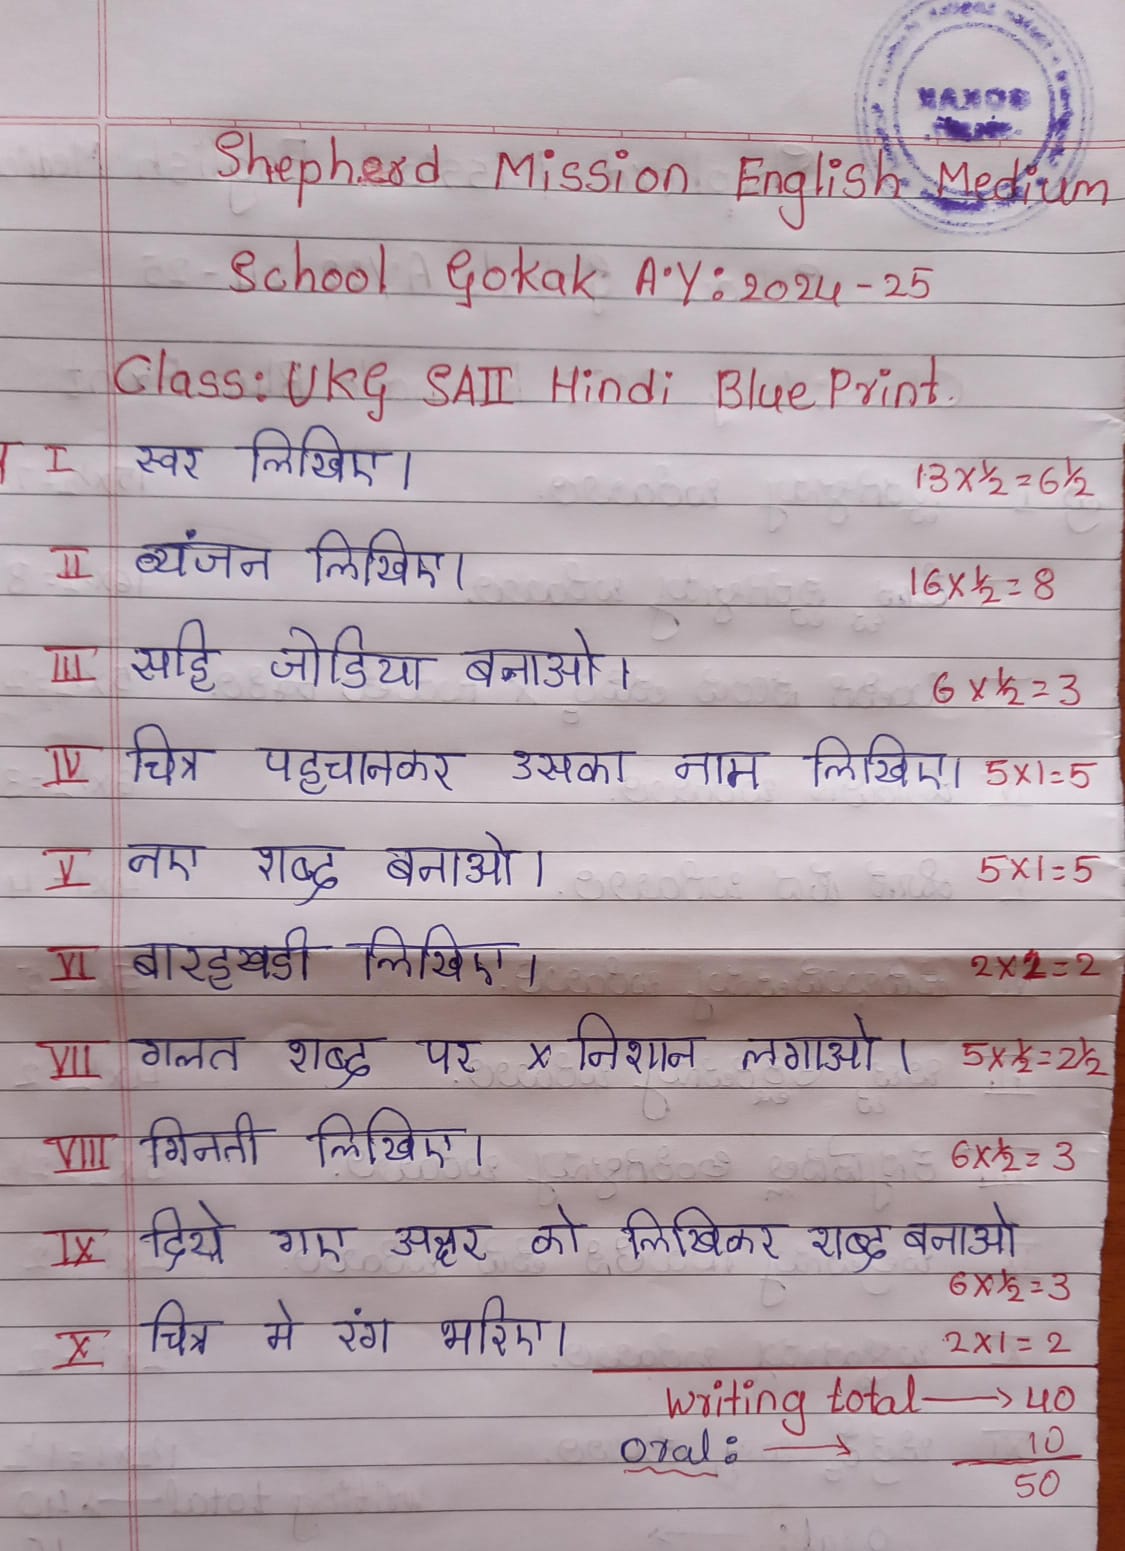 GOKAK
Shepherd Mission English Medium
School Gokak A.Y: 2024-25
Class: UKG SAII Hindi Blue Print.
I स्वर लिखिए। 13 x ½ = 6½
II व्यंजन लिखिए। 16 x ½ = 8
III सहि जोडिया बनाओ। 6 x ½ = 3
IV चित्र पहचानकर उसका नाम लिखिए। 5x1=5
V नए शब्द बनाओ। 5x1=5
VI बारहखडी लिखिए। 2x1=2
VII गलत शब्द पर x निशान लगाओ। 5x½=2½
VIII गिनती लिखिए। 6x½=3
IX दिये गए अक्षर को लिखिकर शब्द बनाओ
6x½=3
X चित्र मे रंग भरिए। 2x1=2
Writing total → 40
Oral: → 10
50